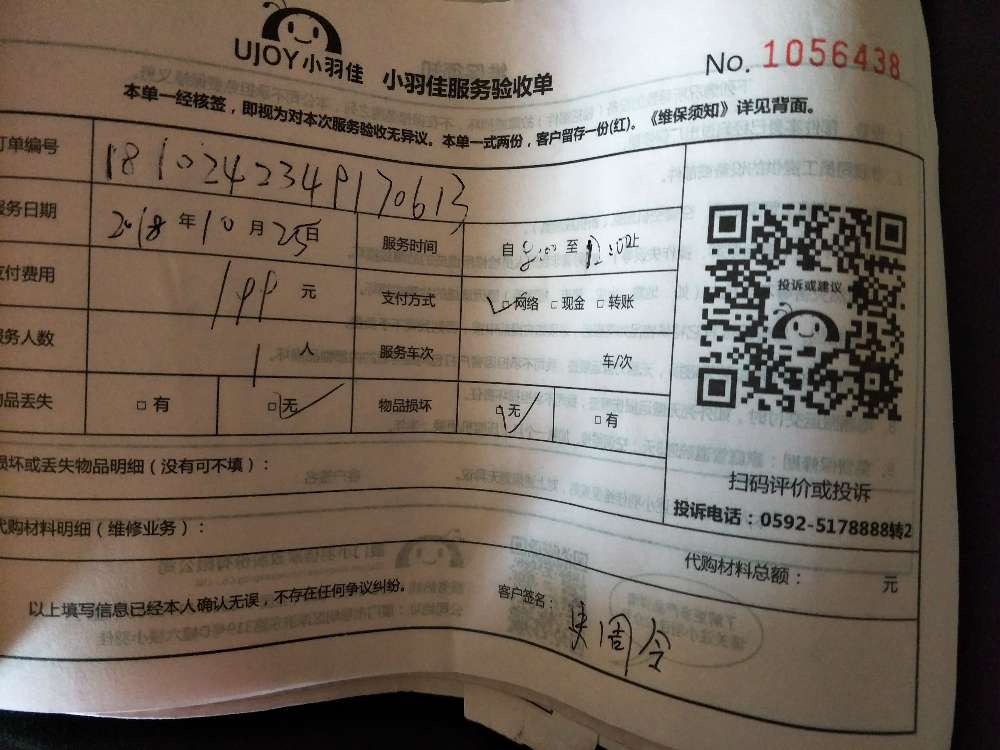 UJOY小羽佳 小羽佳服务验收单 No. 1056438
本单一经核签，即视为对本次服务验收无异议。本单一式两份，客户留存一份(红)。《维保须知》详见背面。
订单编号 1810242349170613
服务日期 2018年10月25日 服务时间 自8:00至12:00止
支付费用 199元 支付方式 □网络 □现金 □转账
服务人数 1人 服务车次 车/次
物品丢失 □有 □无 物品损坏 □无 □有
投诉或建议
损坏或丢失物品明细（没有可不填）：
扫码评价或投诉
投诉电话：0592-5178888转2
代购材料明细（维修业务）：
代购材料总额： 元
以上填写信息已经本人确认无误，不存在任何争议纠纷。 客户签名： 周令